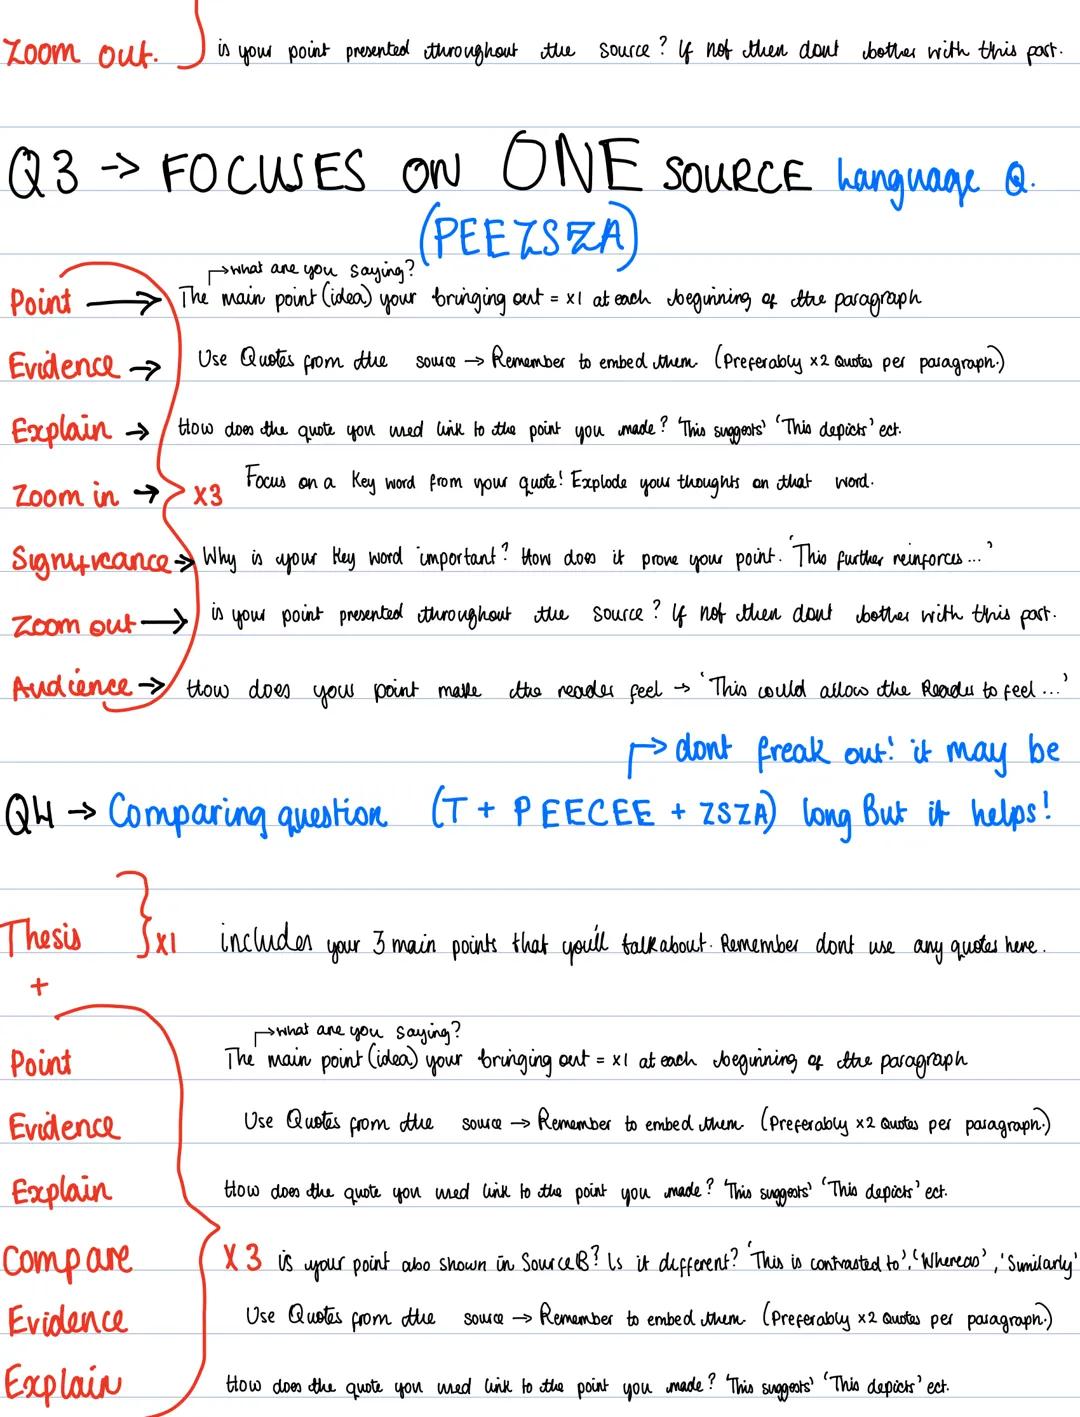 Zoom out. is your point presented throughout the source? If not then dont bother with this part.
Q3 -> FOCUSES ON ONE SOURCE Language Q.
(PEEZSZA)
↱what are you saying?
Point → The main point (idea) your bringing out = x1 at each beginning of the paragraph
Evidence → Use Quotes from the source → Remember to embed them. (Preferably x2 Quotes per paragraph.)
Explain → How does the quote you used link to the point you made? 'This suggests' 'This depicts' ect.
Zoom in → x3 Focus on a Key word from your quote! Explode your thoughts on that word.
Significance → Why is your Key word important? How does it prove your point. 'This further reinforces...'
Zoom out → is your point presented throughout the source? If not then dont bother with this part.
Audience → How does your point make the reader feel → 'This could allow the Reader to feel...'
↱ dont freak out! it may be
Q4 → Comparing question (T + PEECEE + ZSZA) long But it helps!
Thesis x1 includes your 3 main points that you'll talk about. Remember dont use any quotes here.
+
↱what are you saying?
Point The main point (idea) your bringing out = x1 at each beginning of the paragraph
Evidence Use Quotes from the source → Remember to embed them. (Preferably x2 Quotes per paragraph.)
Explain How does the quote you used link to the point you made? 'This suggests' 'This depicts' ect.
Compare X3 is your point also shown in Source B? Is it different? 'This is contrasted to', 'Whereas', 'Similarly'
Evidence Use Quotes from the source → Remember to embed them. (Preferably x2 Quotes per paragraph.)
Explain How does the quote you used link to the point you made? 'This suggests' 'This depicts' ect.